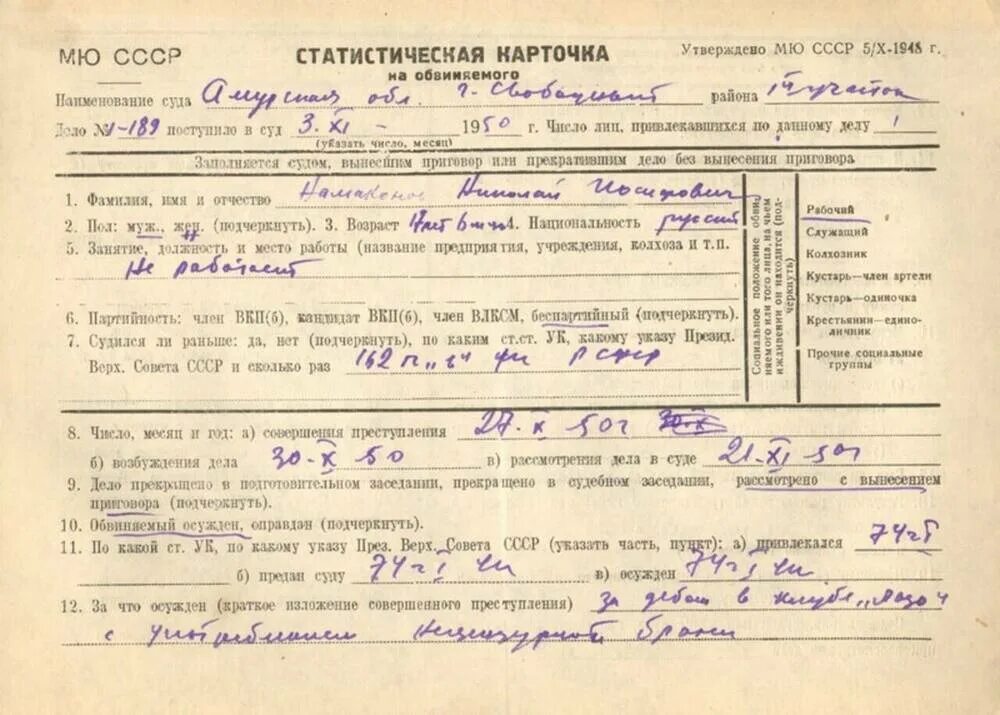 МЮ СССР
СТАТИСТИЧЕСКАЯ КАРТОЧКА
на обвиняемого
Утверждено МЮ СССР 5/X-1948 г.
Наименование суда Амурская обл. г. Свободный района IV участок
Дело № 1-189 поступило в суд 3. XI - 1950 г. Число лиц, привлекавшихся по данному делу 1
(указать число, месяц)
Заполняется судом, вынесшим приговор или прекратившим дело без вынесения приговора
1. Фамилия, имя и отчество Николай Иосифович
2. Пол: муж., жен. (подчеркнуть). 3. Возраст 17 лет 6 4. Национальность русский
5. Занятие, должность и место работы (название предприятия, учреждения, колхоза и т.п.
Не работает
6. Партийность: член ВКП(б), кандидат ВКП(б), член ВЛКСМ, беспартийный (подчеркнуть).
7. Судился ли раньше: да, нет (подчеркнуть), по каким ст.ст. УК, какому указу Презид.
Верх. Совета СССР и сколько раз 162 п „в" УК РСФСР
Социальное положение обвиняемого или того лица, на чьем иждивении он находится (подчеркнуть)
Рабочий
Служащий
Колхозник
Кустарь—член артели
Кустарь—одиночка
Крестьянин—единоличник
Прочие социальные группы
8. Число, месяц и год: а) совершения преступления 27. X 50г
б) возбуждения дела 30-X 50 в) рассмотрения дела в суде 21-XI 50г
9. Дело прекращено в подготовительном заседании, прекращено в судебном заседании, рассмотрено с вынесением
приговора (подчеркнуть).
10. Обвиняемый осужден, оправдан (подчеркнуть).
11. По какой ст. УК, по какому указу През. Верх. Совета СССР (указать часть, пункт): а) привлекался 74 ч I
б) предан суду 74 ч I УК в) осужден 74 ч I УК
12. За что осужден (краткое изложение совершенного преступления) за дебош в клубе
с употреблением нецензурной брани